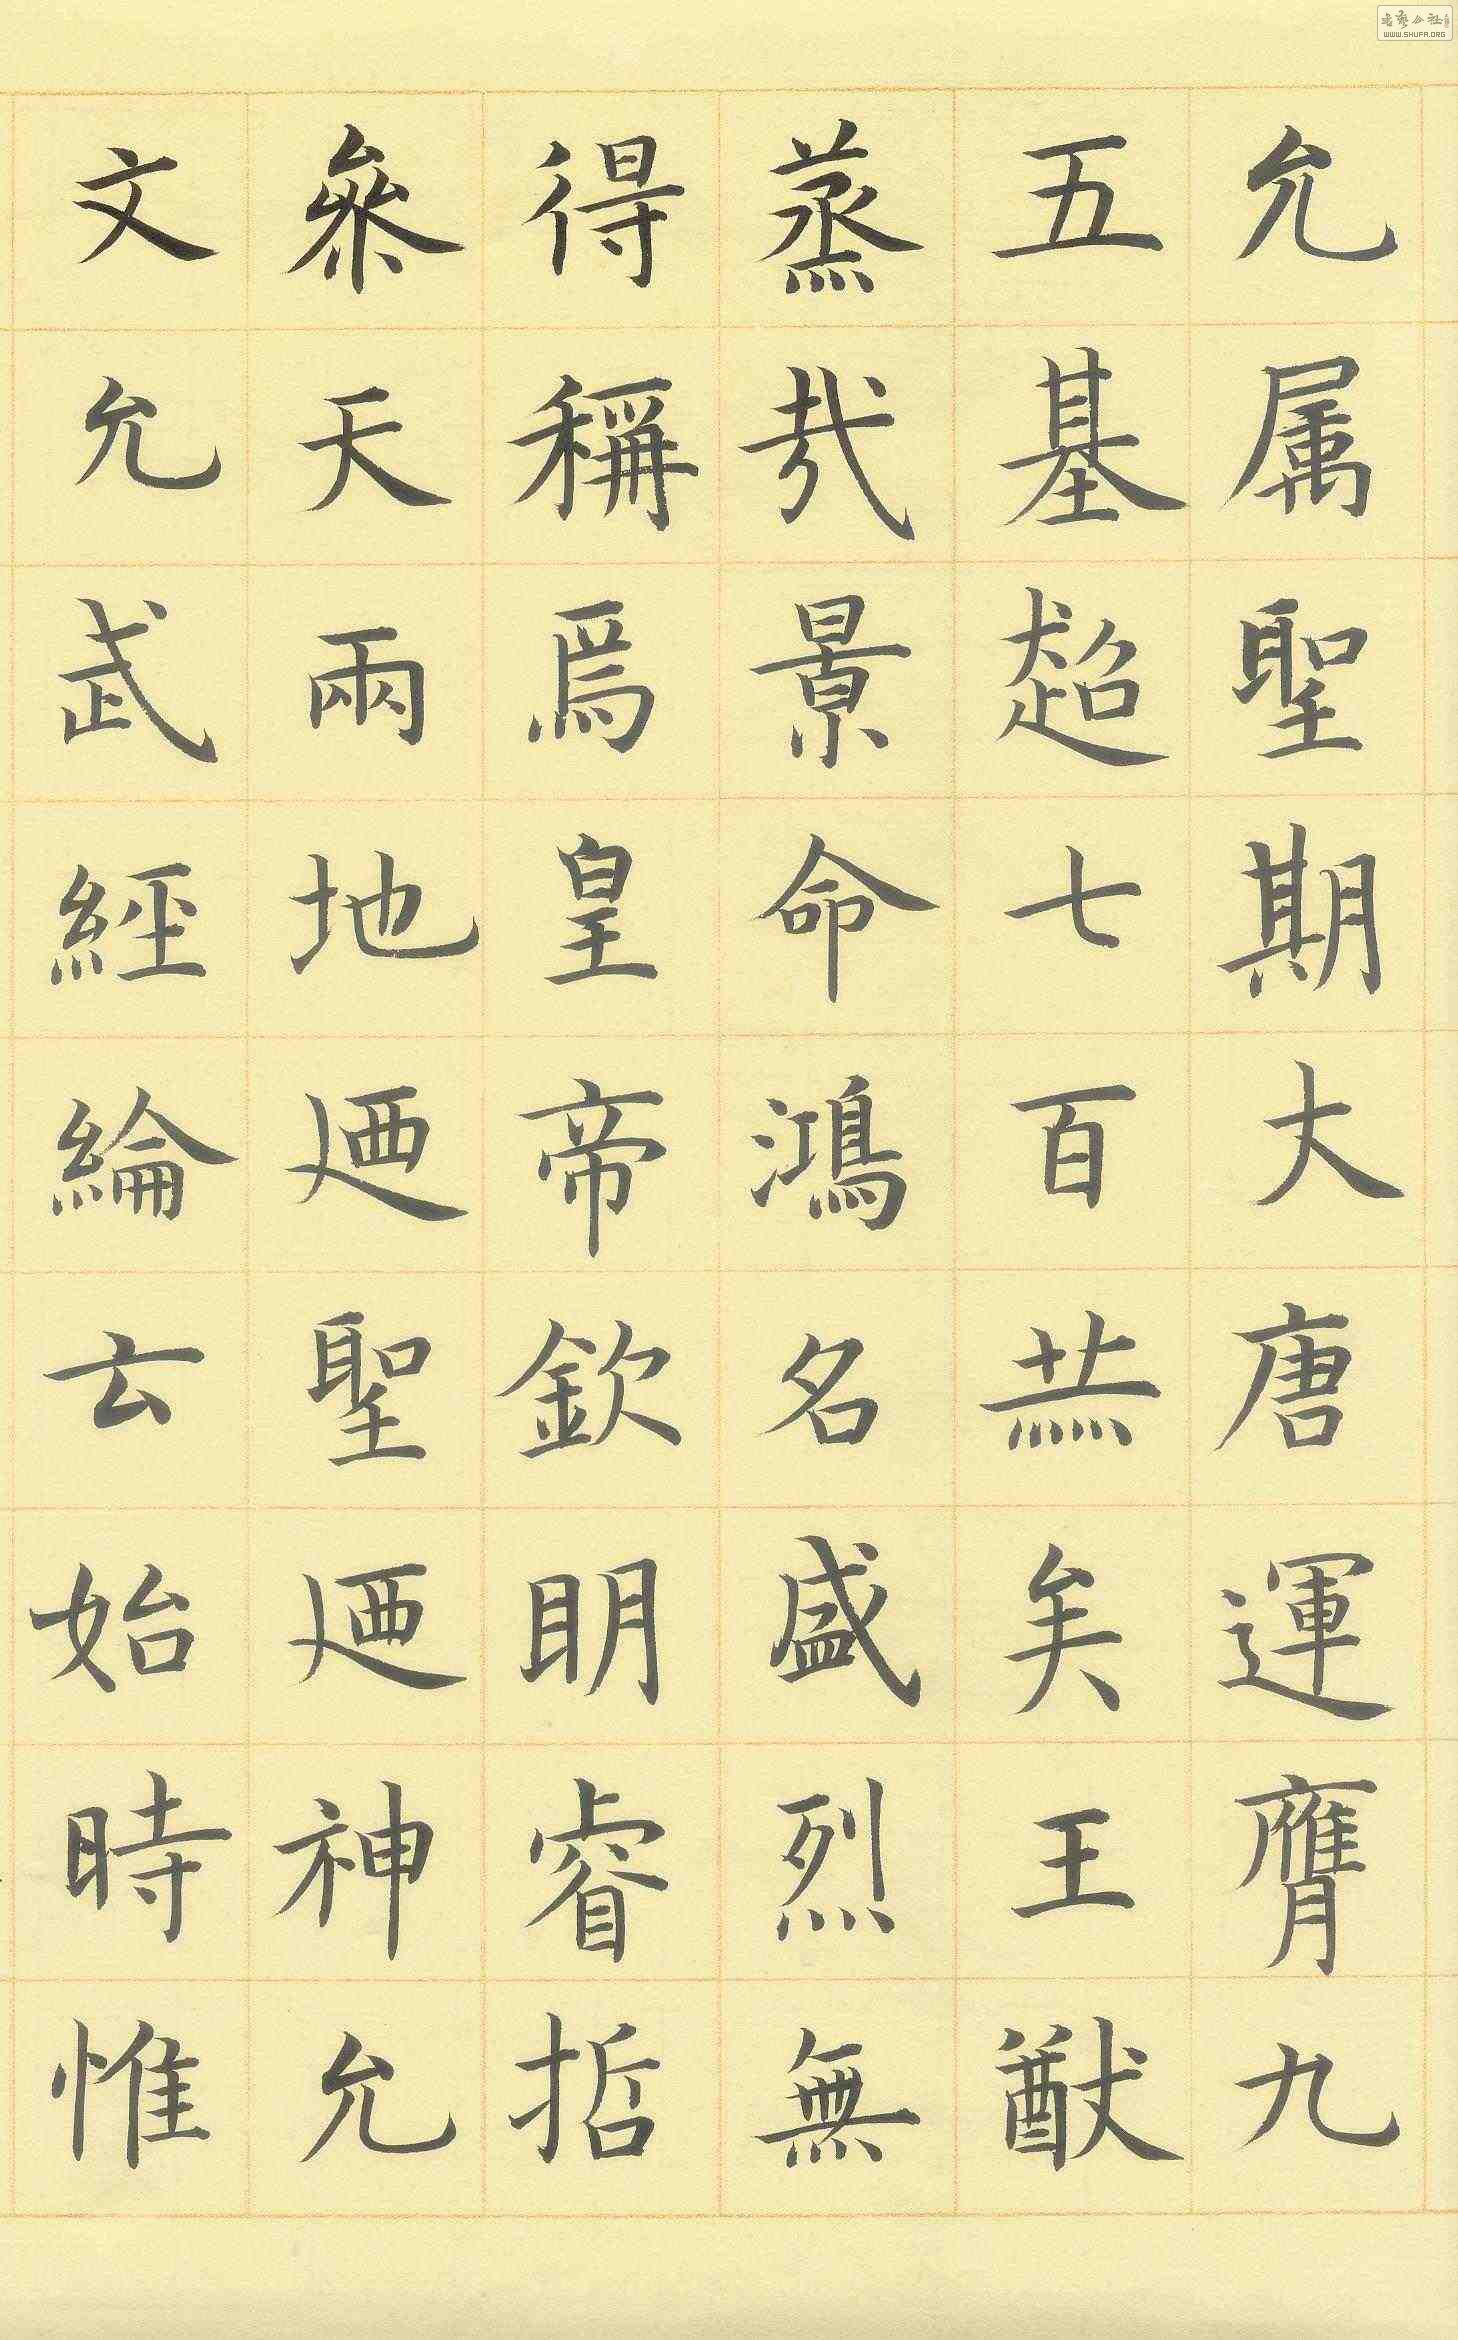 允属聖期大唐運膺九
五基超七百赫矣王猷
蒸哉景命鴻名盛烈無
得稱焉皇帝欽明睿哲
參天兩地迺聖迺神允
文允武經綸云始時惟
WWW.SHUFA.ORG